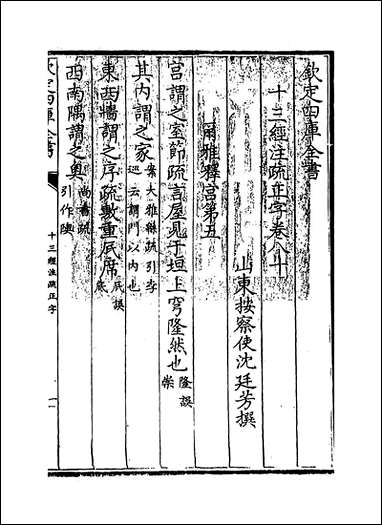 欽定四庫全書
十三經注疏正字卷八十
山東按察使沈廷芳撰
爾雅釋宮第五
宮謂之室節疏言屋見于垣上穹隆然也隆誤崇
其内謂之家案大雅緜疏引李巡云謂門以内也
東西牆謂之序疏敷重厎席厎誤底
西南隅謂之奥尚書疏引作隩
欽定四庫全書
十三經注疏正字
一